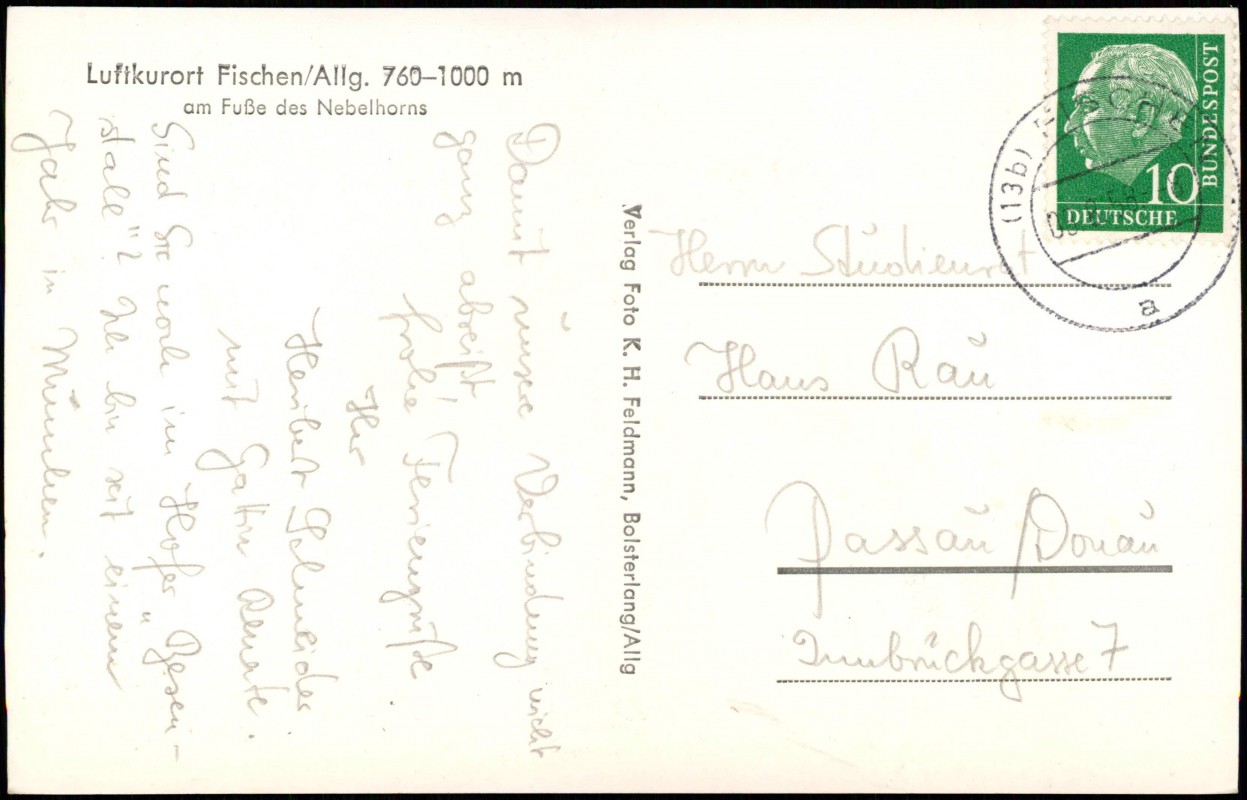 Luftkurort Fischen/Allg. 760–1000 m
am Fuße des Nebelhorns
Damit unsere Verbindung nicht
ganz abreißt,
frohe Feriengrüße
Ihr
Heribert Schneider
mit Gattin Renate.
Sind Sie noch im Hofer „Besen-
stall"? Ich bin seit einem
Jahr in München.
Verlag Foto K. H. Feldmann, Bolsterlang/Allg
DEUTSCHE
BUNDESPOST
10
(13b) FISCHEN
a
Herrn Studienrat
Hans Rau
Passau/Donau
Innbrückgasse 7